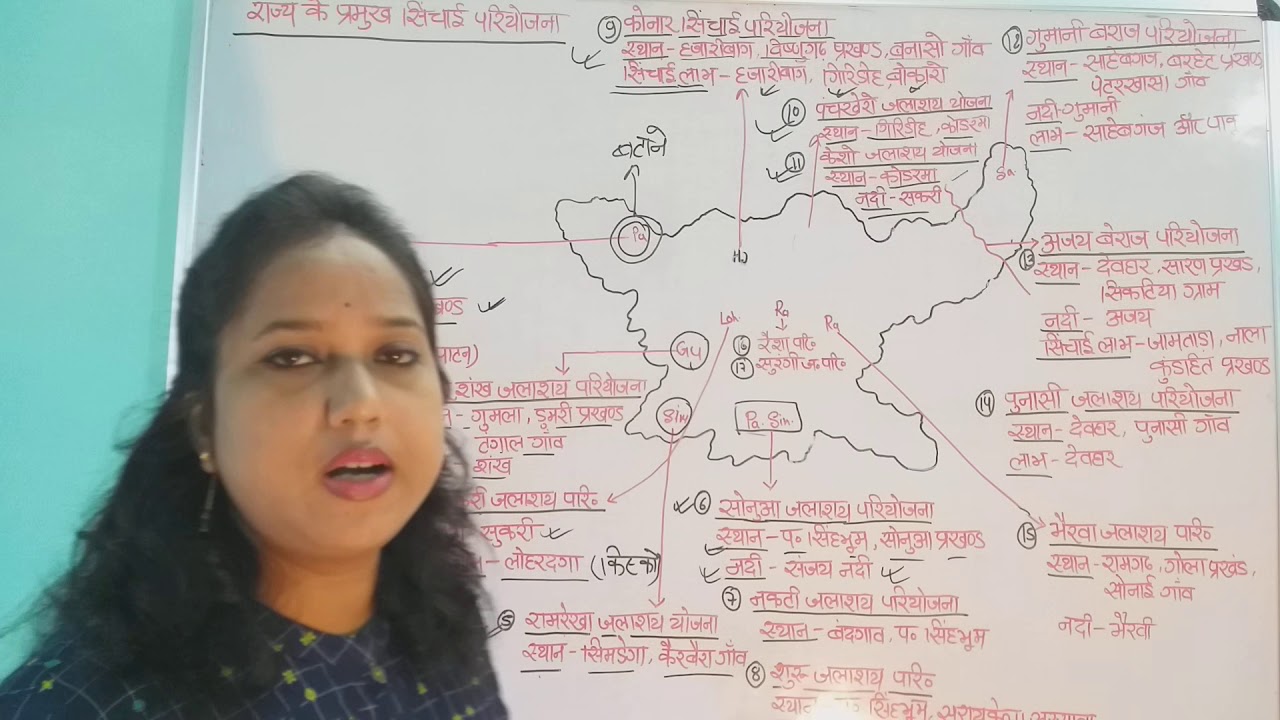 राज्य के प्रमुख सिंचाई परियोजना
⑨ कोनार सिंचाई परियोजना
स्थान - हजारीबाग, विष्णुगढ़ प्रखण्ड, बनासो गाँव
सिंचाई लाभ - हजारीबाग, गिरिडीह, बोकारो
⑩ पंचखेरो जलाशय योजना
स्थान - गिरिडीह, कोडरमा
⑪ केशो जलाशय योजना
स्थान - कोडरमा
नदी - सकरी
⑫ गुमानी बराज परियोजना
स्थान - साहेबगंज, बरहेट प्रखण्ड
पेटरखासा गाँव
नदी - गुमानी
लाभ - साहेबगंज और
बटाने
Pa
Ha
Sa
⑬ अजय बैराज परियोजना
स्थान - देवघर, सारण प्रखंड,
सिकटिया ग्राम
नदी - अजय
सिंचाई लाभ - जामताड़ा, नाला
कुंडहित प्रखण्ड
पाटन)
Loh
Ra
Ra
⑯ रैशा परि॰
⑰ सुरंगी ज॰ परि॰
Gu
Sim
Pa. Sim.
शंख जलाशय परियोजना
- गुमला, डुमरी प्रखण्ड
टंगाल गाँव
शंख
⑭ पुनासी जलाशय परियोजना
स्थान - देवघर, पुनासी गाँव
लाभ - देवघर
जलाशय परि॰
सुकरी
- लोहरदगा (किस्को)
⑤ रामरेखा जलाशय योजना
स्थान - सिमडेगा, कैरबैरा गाँव
⑥ सोनुआ जलाशय परियोजना
स्थान - प॰ सिंहभूम, सोनुआ प्रखण्ड
नदी - संजय नदी
⑦ नकटी जलाशय परियोजना
स्थान - बंदगाव, प॰ सिंहभूम
⑧ शुरू जलाशय परि॰
सिंहभूम,
⑮ भैरवा जलाशय परि॰
स्थान - रामगढ़, गोला प्रखंड,
सोनाई गाँव
नदी - भैरवी